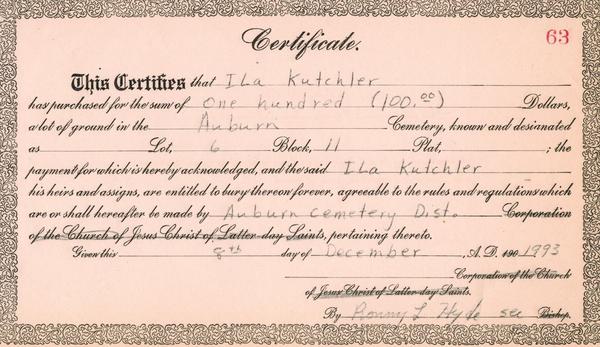 Certificate.
63
This Certifies that ILa Kutchler
has purchased for the sum of One hundred (100.00) Dollars,
a lot of ground in the Auburn Cemetery, known and desianated
as Lot, 6 Block, 11 Plat, ; the
payment for which is hereby acknowledged, and the said ILa Kutchler
his heirs and assigns, are entitled to bury thereon forever, agreeable to the rules and regulations which
are or shall hereafter be made by Auburn Cemetery Dist. Corporation
of the Church of Jesus Christ of Latter-day Saints, pertaining thereto.
Given this 8th day of December A.D. 190 1993
Corporation of the Church
of Jesus Christ of Latter-day Saints.
By Ronny L Hyde sec Bishop.